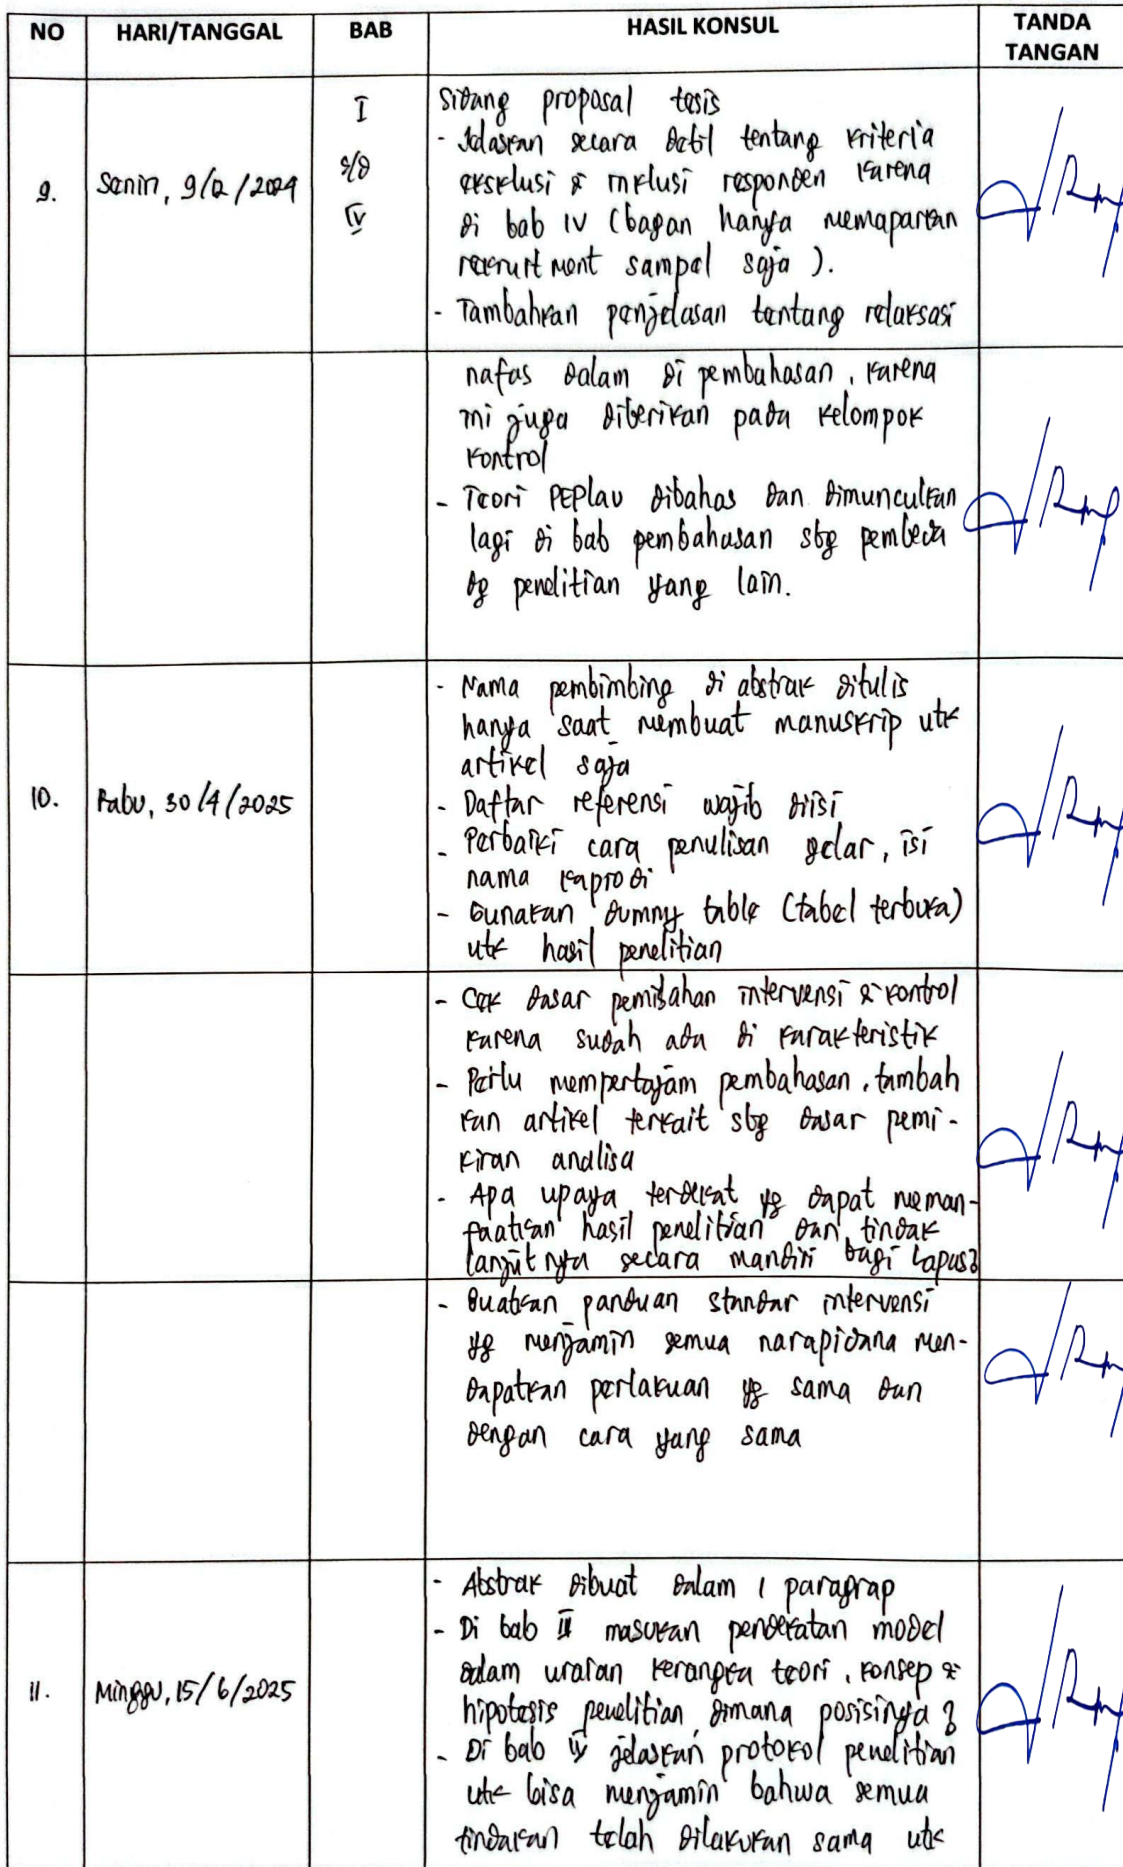 NO HARI/TANGGAL BAB HASIL KONSUL TANDA TANGAN
9. Senin, 9/12/2024 I s/d IV
Sidang proposal tesis
- Jelaskan secara detil tentang kriteria
eksklusi & inklusi responden karena
di bab IV (bagan hanya memaparkan
recruitment sampel saja).
- Tambahkan penjelasan tentang relaksasi
nafas dalam di pembahasan, karena
ini juga diberikan pada kelompok
kontrol
- Teori PEPlau dibahas dan dimunculkan
lagi di bab pembahasan sbg pembeda
dg penelitian yang lain.
10. Rabu, 30/4/2025
- Nama pembimbing di abstrak ditulis
hanya saat membuat manuskrip utk
artikel saja
- Daftar referensi wajib diisi
- Perbaiki cara penulisan gelar, isi
nama kaprodi
- Gunakan dummy table (tabel terbuka)
utk hasil penelitian
- Cek dasar pemisahan intervensi & kontrol
karena sudah ada di karakteristik
- Perlu mempertajam pembahasan, tambah
kan artikel terkait sbg dasar pemi-
kiran analisa
- Apa upaya terdekat yg dapat meman-
faatkan hasil penelitian dan tindak
lanjutnya secara mandiri bagi Lapas?
- Buatkan panduan standar intervensi
yg menjamin semua narapidana men-
dapatkan perlakuan yg sama dan
dengan cara yang sama
11. Minggu, 15/6/2025
- Abstrak dibuat dalam 1 paragrap
- Di bab II masukan pendekatan model
dalam uraian kerangka teori, konsep &
hipotesis penelitian, dimana posisinya?
- Di bab IV jelaskan protokol penelitian
utk bisa menjamin bahwa semua
tindakan telah dilakukan sama utk